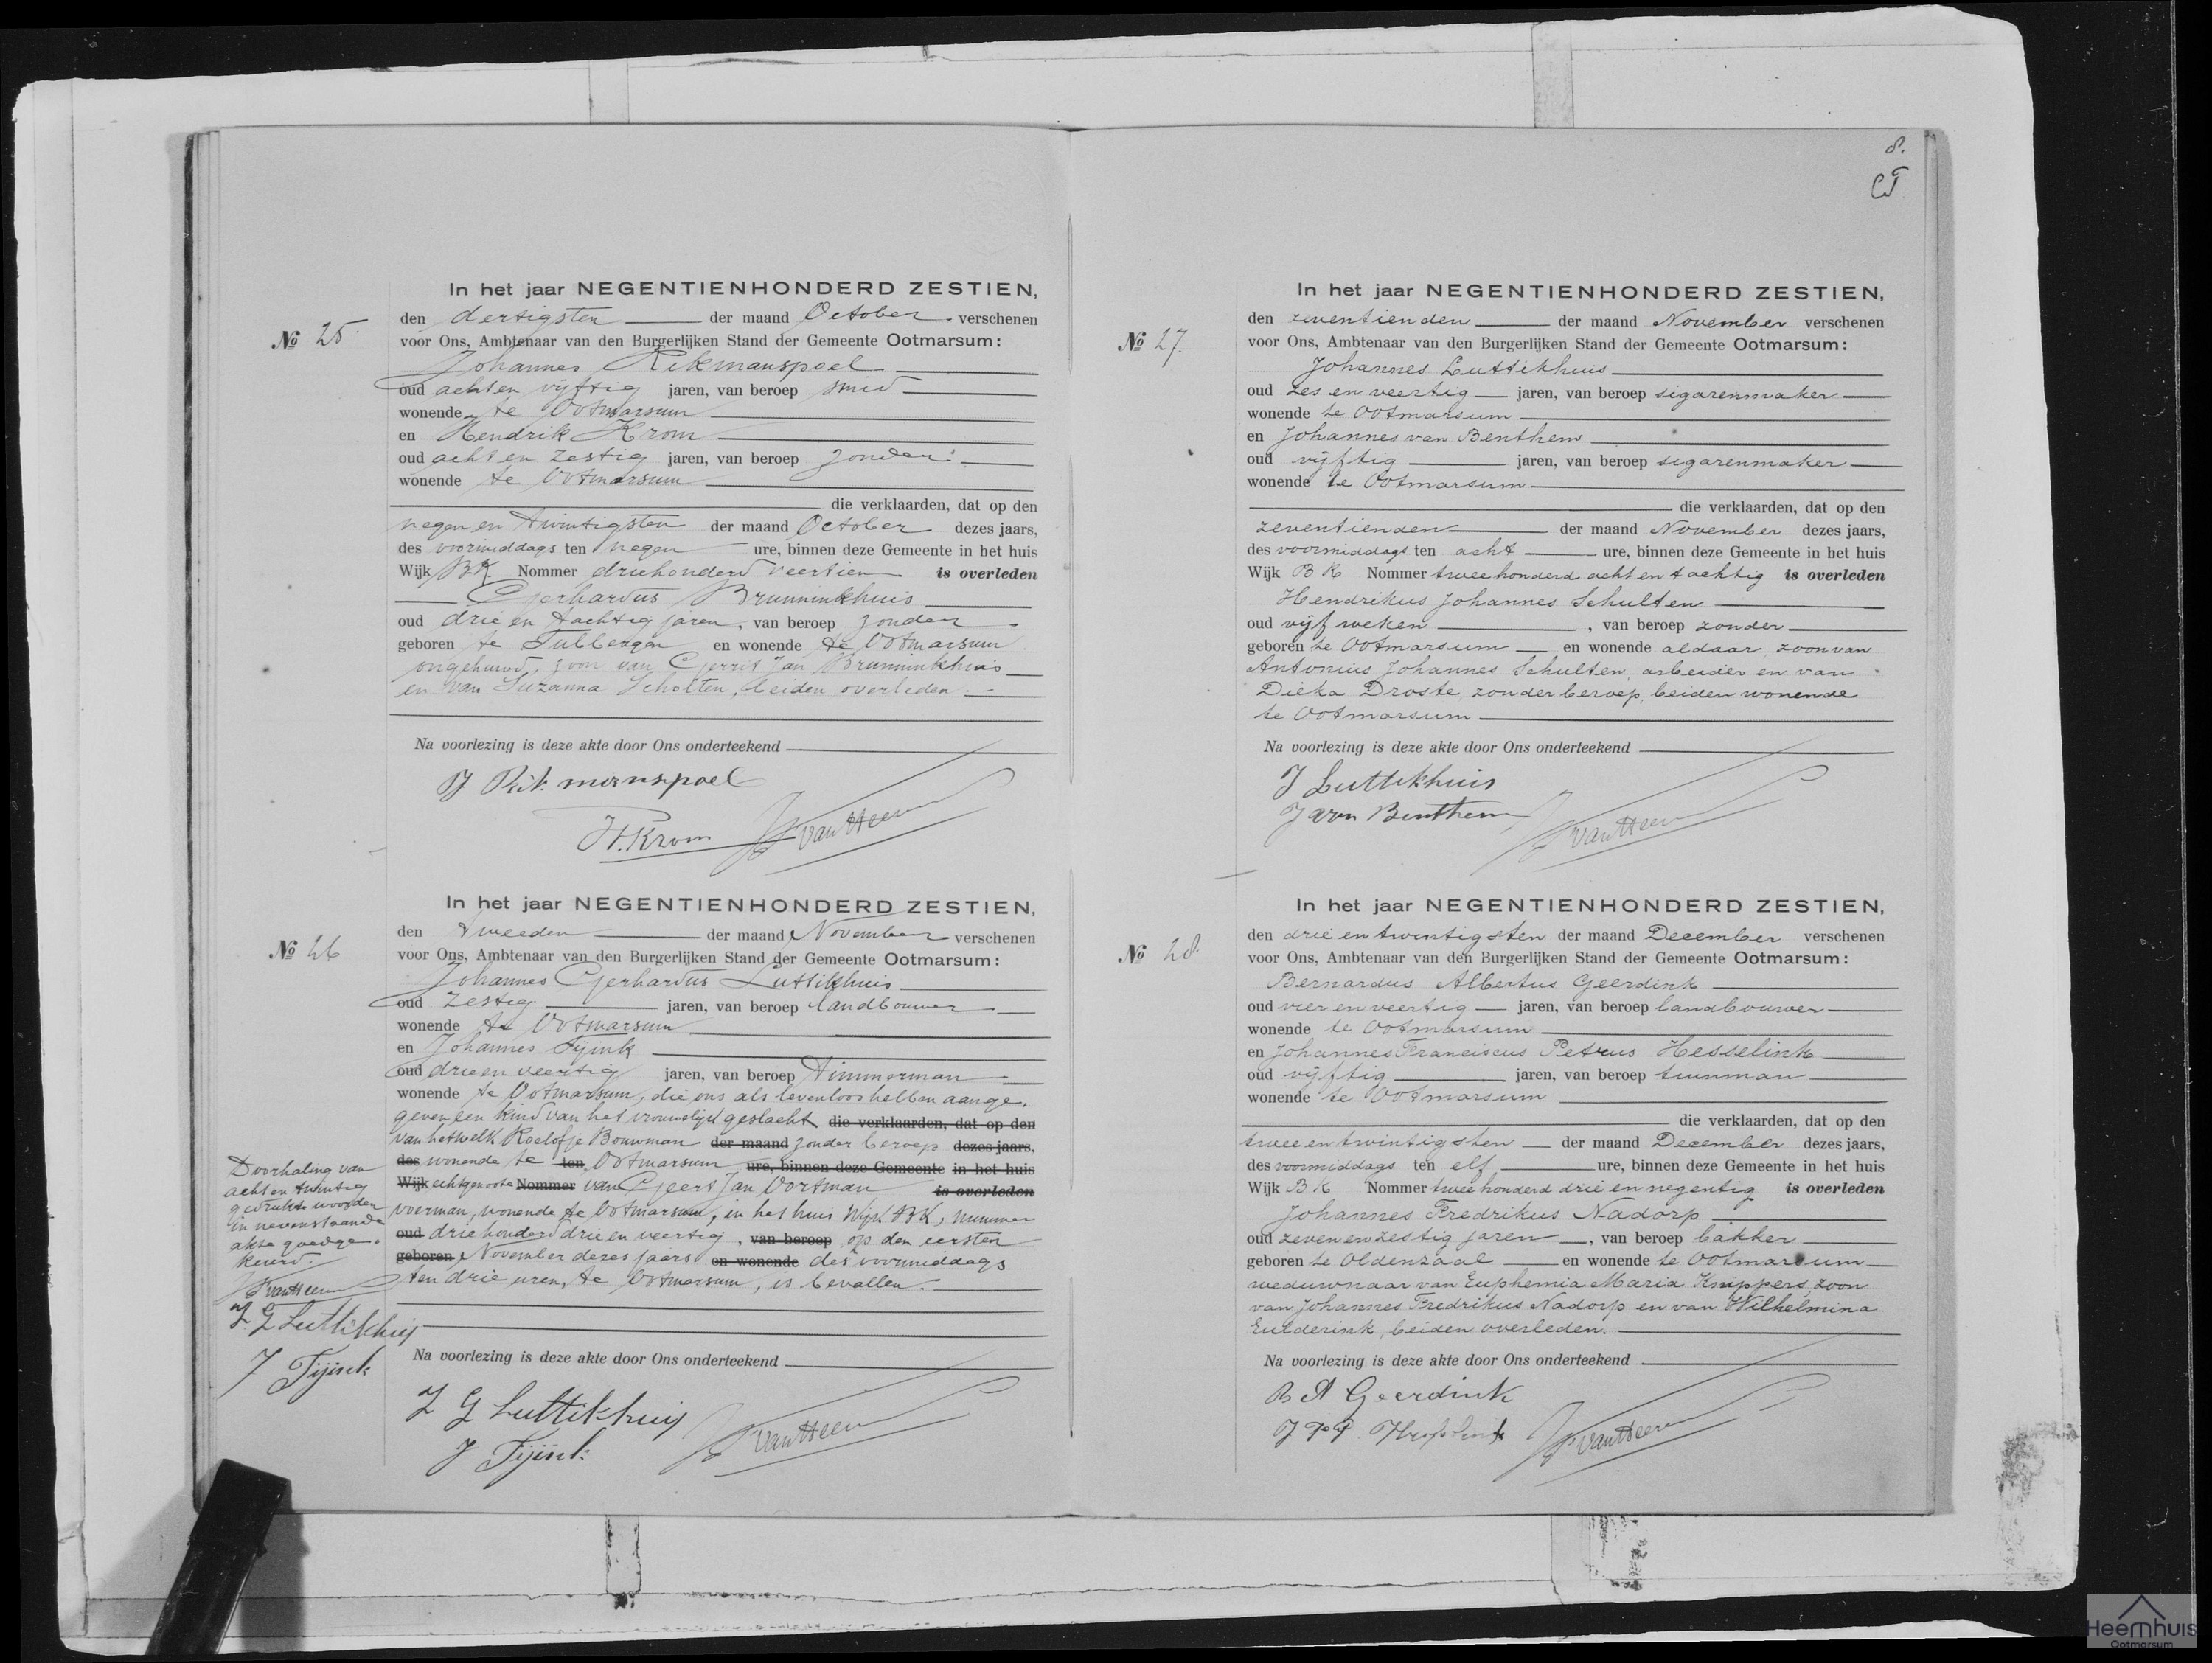 In het jaar NEGENTIENHONDERD ZESTIEN,
den dertigsten der maand October verschenen
No 25.
voor Ons, Ambtenaar van den Burgerlijken Stand der Gemeente Ootmarsum:
Johannes Rikmanspoel
oud acht en vijftig jaren, van beroep smid
wonende te Ootmarsum
en Hendrik Krom
oud acht en zestig jaren, van beroep zonder
wonende te Ootmarsum
die verklaarden, dat op den
negen en twintigsten der maand October dezes jaars,
des voormiddags ten negen ure, binnen deze Gemeente in het huis
Wijk BK Nommer driehonderd veertien is overleden
Gerhardus Brunninkhuis
oud drie en tachtig jaren, van beroep zonder
geboren te Tubbergen en wonende te Ootmarsum
ongehuwd, zoon van Gerrit Jan Brunninkhuis
en van Suzanna Scholten, beiden overleden.
Na voorlezing is deze akte door Ons onderteekend
J Rikmanspoel
H. Krom van Heern
In het jaar NEGENTIENHONDERD ZESTIEN,
den tweeden der maand November verschenen
No 26
voor Ons, Ambtenaar van den Burgerlijken Stand der Gemeente Ootmarsum:
Johannes Gerhardus Luttikhuis
oud zestig jaren, van beroep landbouwer
wonende te Ootmarsum
en Johannes Tijink
oud drie en veertig jaren, van beroep timmerman
wonende te Ootmarsum, die ons als levenloos hebben aange-
geven een kind van het vrouwelijk geslacht die verklaarden, dat op den
van hetwelk Roelofje Bouwman der maand zonder beroep dezes jaars,
des wonende te ten Ootmarsum ure, binnen deze Gemeente in het huis
Wijk echtgenoote Nommer van Geert Jan Oortman is overleden
voerman, wonende te Ootmarsum, in het huis Wijk BK, nummer
oud driehonderd drie en veertig, van beroep op den eersten
geboren November dezes jaars en wonende des voormiddags
ten drie uren, te Ootmarsum, is bevallen.
Doorhaling van
acht en twintig
gedrukte woorden
in nevenstaande
akte goedge-
keurd.
van Heern
J. G Luttikhuis
J Tijink
Na voorlezing is deze akte door Ons onderteekend
J G Luttikhuis
J Tijink van Heern
8.
In het jaar NEGENTIENHONDERD ZESTIEN,
den zeventienden der maand November verschenen
No 27.
voor Ons, Ambtenaar van den Burgerlijken Stand der Gemeente Ootmarsum:
Johannes Luttikhuis
oud zes en veertig jaren, van beroep sigarenmaker
wonende te Ootmarsum
en Johannes van Benthem
oud vijftig jaren, van beroep sigarenmaker
wonende te Ootmarsum
die verklaarden, dat op den
zeventienden der maand November dezes jaars,
des voormiddags ten acht ure, binnen deze Gemeente in het huis
Wijk BK Nommer twee honderd acht en tachtig is overleden
Hendrikus Johannes Schulten
oud vijf weken, van beroep zonder
geboren te Ootmarsum en wonende aldaar, zoon van
Antonius Johannes Schulten, arbeider en van
Dieka Droste, zonder beroep, beiden wonende
te Ootmarsum
Na voorlezing is deze akte door Ons onderteekend
J Luttikhuis
J van Benthem
van Heern
In het jaar NEGENTIENHONDERD ZESTIEN,
den drie en twintigsten der maand December verschenen
No 28.
voor Ons, Ambtenaar van den Burgerlijken Stand der Gemeente Ootmarsum:
Bernardus Albertus Geerdink
oud vier en veertig jaren, van beroep landbouwer
wonende te Ootmarsum
en Johannes Franciscus Petrus Hesselink
oud vijftig jaren, van beroep tuinman
wonende te Ootmarsum
die verklaarden, dat op den
twee en twintigsten der maand December dezes jaars,
des voormiddags ten elf ure, binnen deze Gemeente in het huis
Wijk BK Nommer twee honderd drie en negentig is overleden
Johannes Fredrikus Nadorp
oud zeven en zestig jaren, van beroep bakker
geboren te Oldenzaal en wonende te Ootmarsum
weduwnaar van Euphemia Maria Knippers, zoon
van Johannes Fredrikus Nadorp en van Wilhelmina
Eulderink, beiden overleden.
Na voorlezing is deze akte door Ons onderteekend
B A Geerdink
J F P Hesselink van Heern
Heemhuis
Ootmarsum